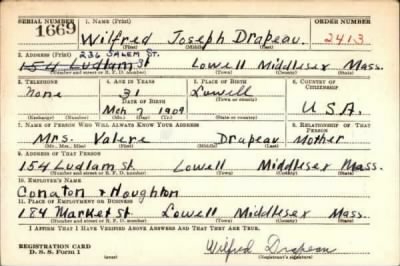 SERIAL NUMBER 1. NAME (Print) ORDER NUMBER
1669 Wilfred Joseph Drapeau. 2413
(First) (Middle) (Last)
2. ADDRESS (Print) 236 SALEM ST.
154 Ludlam St Lowell Middlesex Mass.
(Number and street or R. F. D. number) (Town) (County) (State)
3. TELEPHONE 4. AGE IN YEARS 5. PLACE OF BIRTH 6. COUNTRY OF CITIZENSHIP
None 31 Lowell
DATE OF BIRTH (Town or county)
Mch 1909 U.S.A.
(Exchange) (Number) (Mo.) (Day) (Yr.) (State or country)
7. NAME OF PERSON WHO WILL ALWAYS KNOW YOUR ADDRESS 8. RELATIONSHIP OF THAT PERSON
Mrs. Drapeau Mother
(Mr., Mrs., Miss) (First) (Middle) (Last)
9. ADDRESS OF THAT PERSON
154 Ludlam St. Lowell Middlesex Mass.
(Number and street or R. F. D. number) (Town) (County) (State)
10. EMPLOYER'S NAME
Conaton & Houghton
11. PLACE OF EMPLOYMENT OR BUSINESS
184 Market St Lowell Middlesex Mass.
(Number and street or R. F. D. number) (Town) (County) (State)
I AFFIRM THAT I HAVE VERIFIED ABOVE ANSWERS AND THAT THEY ARE TRUE.
REGISTRATION CARD
D. S. S. Form 1 (over) Wilfred Drapeau
(Registrant's signature)